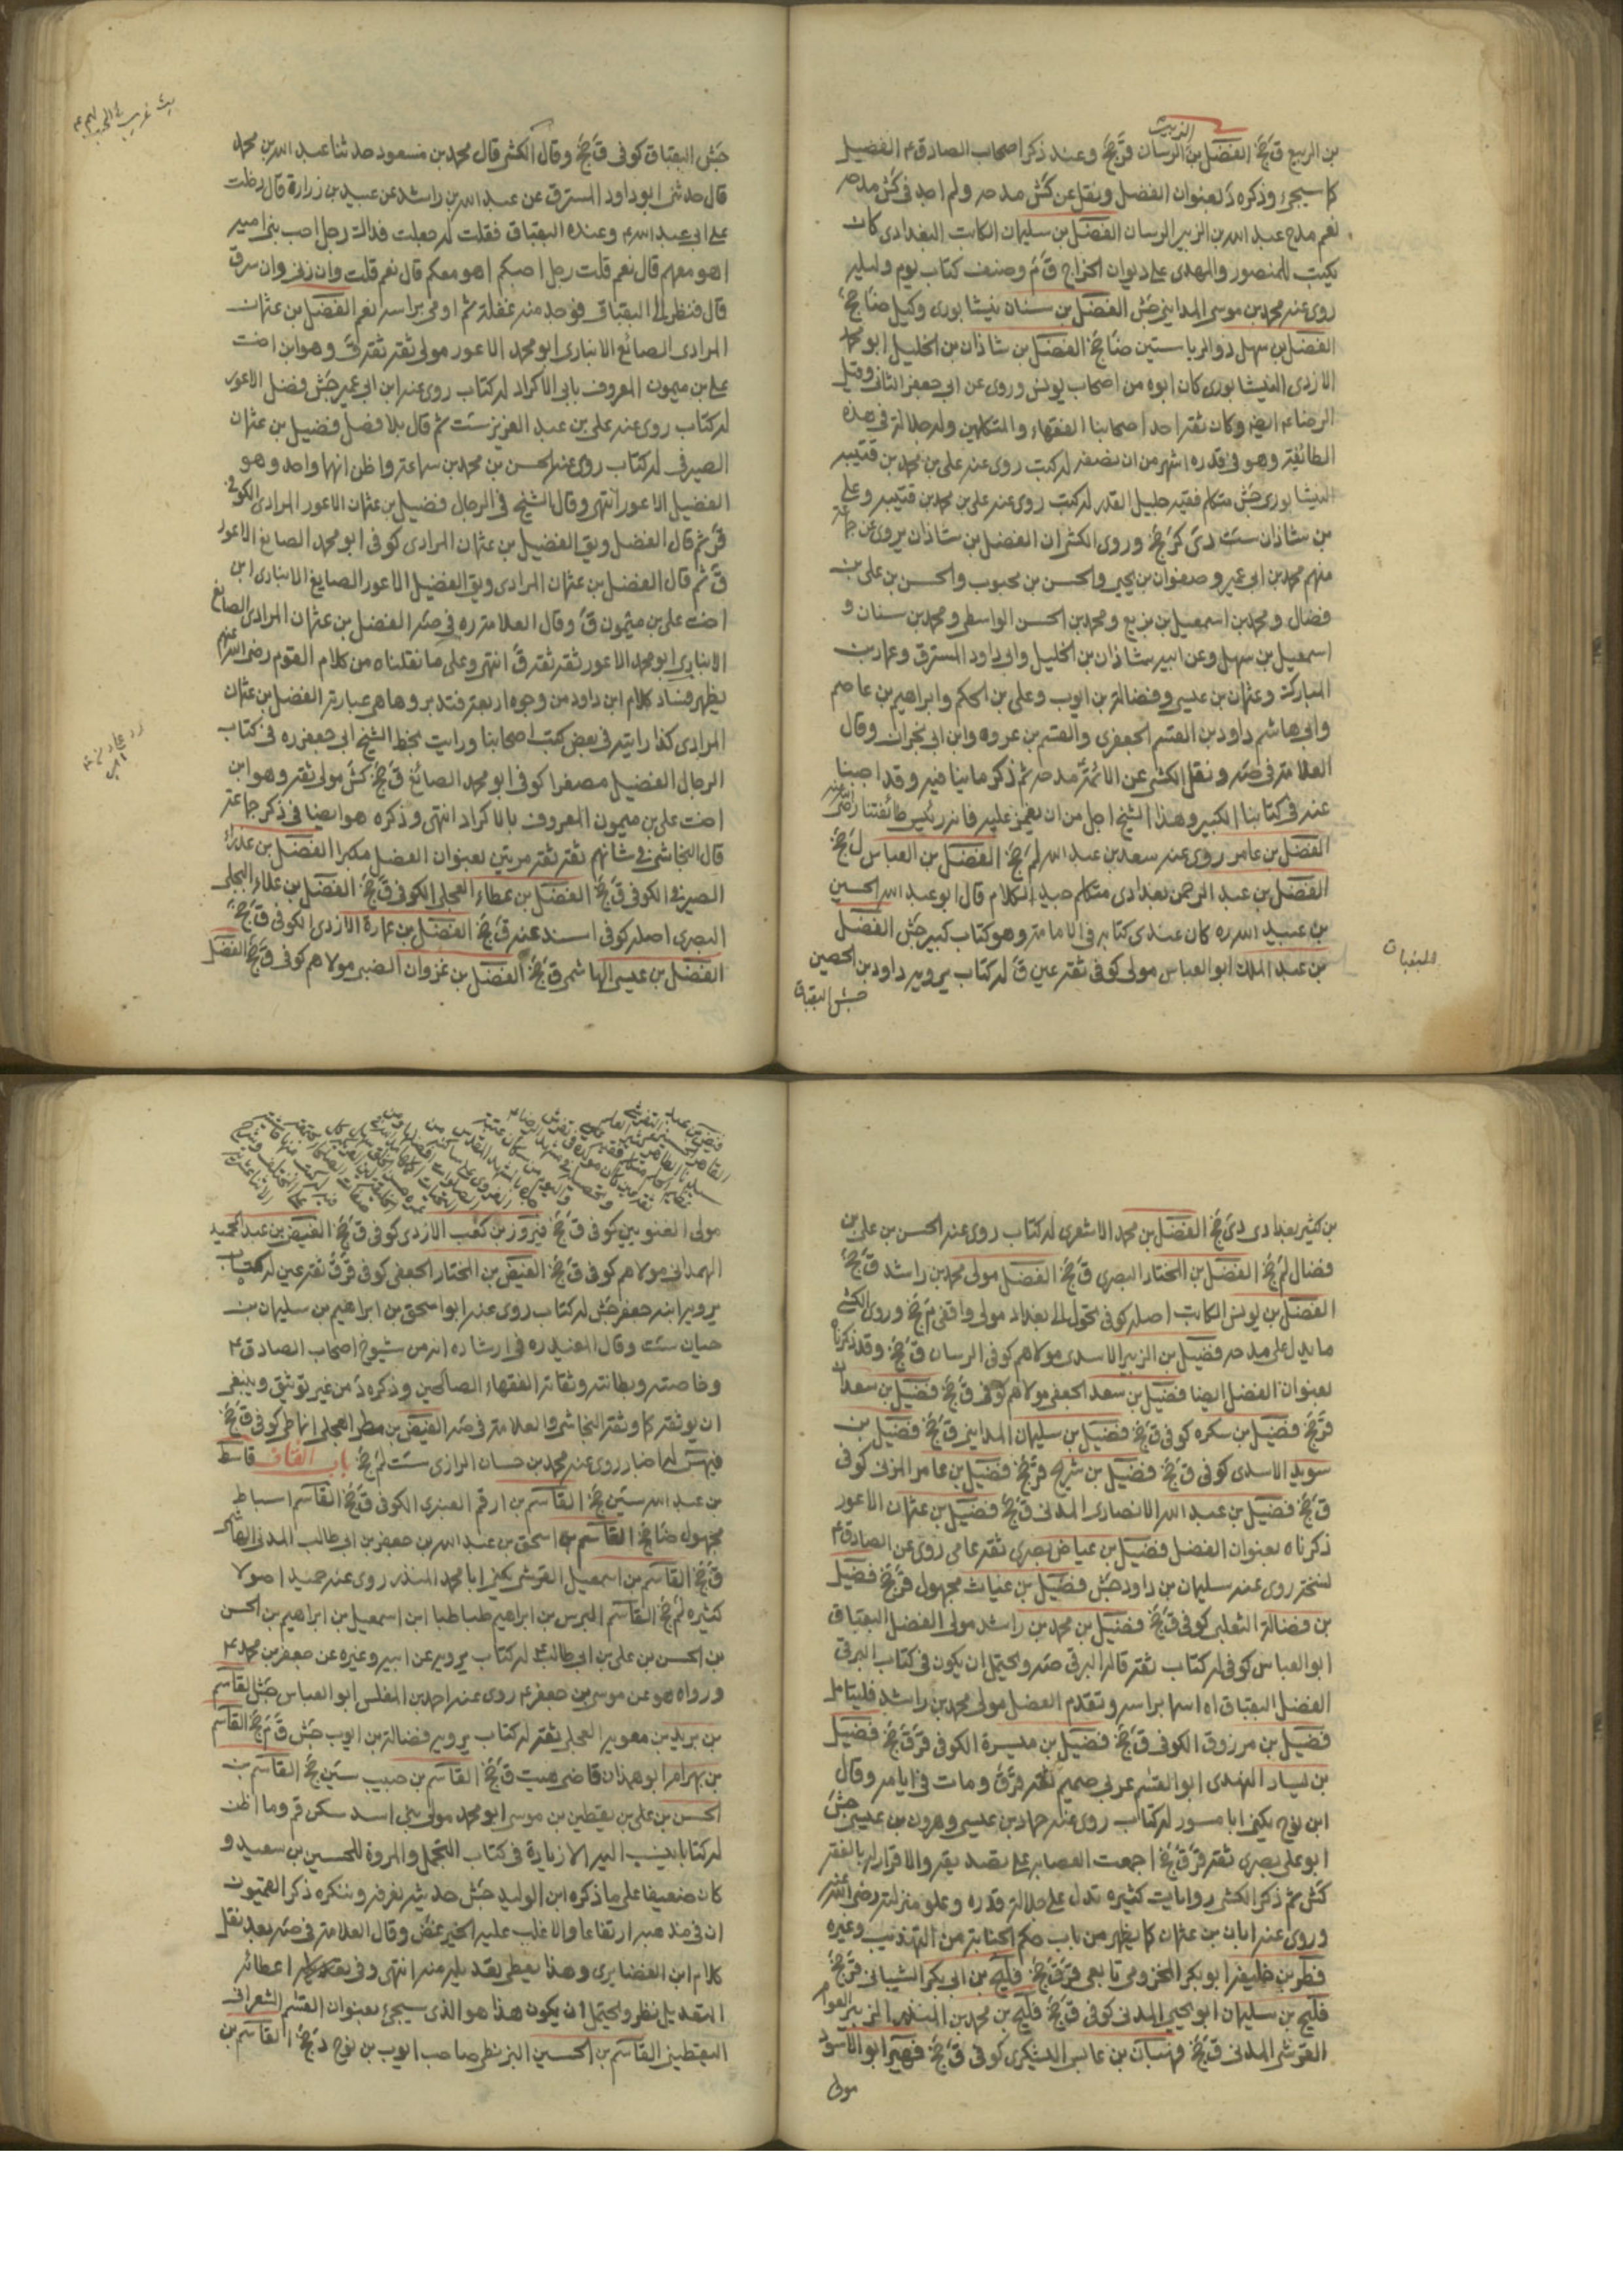 بن الربيع ق جخ الفضل بن الزبير الرسان قر جخ وعند ذكر اصحاب الصادق ع الفضيل
كما سيجيء وذكره د بعنوان الفضل ونقل عن كش مدحه ولم اجد في كش مدحه
نعم مدح عبد الله بن الزبير الرسان الفضل بن سليمان الكاتب البغدادى كان
يكتب للمنصور والمهدى على ديوان الخراج ق م وصنف كتاب يوم وليله
روى عنه محمد بن موسى المدايني جش الفضل بن سنان نيشابورى وكيل ضا جخ
الفضل بن سهل ذو الرياستين ضا جخ الفضل بن شاذان بن الخليل ابو محمد
الازدى النيشابورى كان ابوه من اصحاب يونس وروى عن ابى جعفر الثاني وقيل
الرضا ع ايضا وكان ثقة احد اصحابنا الفقهاء والمتكلمين وله جلالة في هذه
الطائفة وهو في قدره اشهر من ان نصفه له كتب روى عنه على بن محمد بن قتيبه
النيشابورى جش متكلم فقيه جليل القدر له كتب روى عنه على بن محمد بن قتيبه وعلى
بن شاذان ست دى كر جخ وروى الكشي ان الفضل بن شاذان يروى عن جماعة
منهم محمد بن ابى عمير وصفوان بن يحيى والحسن بن محبوب والحسن بن على بن
فضال ومحمد بن اسمعيل بن بزيع ومحمد بن الحسن الواسطى ومحمد بن سنان و
اسمعيل بن سهل وعن ابيه شاذان بن الخليل وابى داود المسترق وعمار بن
المباركة وعثمان بن عيسى وفضالة بن ايوب وعلى بن الحكم وابراهيم بن عاصم
وابى هاشم داود بن القسم الجعفرى والقسم بن عروه وابن ابى نجران وقال
العلامة في صه ونقل الكشي عن الائمة مدحه ثم ذكر ما ينافيه وقد اجبنا
عنه في كتابنا الكبير وهذا الشيخ اجل من ان يغمز عليه فانه رئيس طائفتنا رضى عنه
الفضل بن عامر روى عنه سعد بن عبد الله لم جخ الفضل بن العباس ل جخ
الفضل بن عبد الرحمن بغدادى متكلم جيد الكلام قال ابو عبد الله الحسين
بن عبيد الله ره كان عندى كتابه في الامامة وهو كتاب كبير جش الفضل
بن عبد الملك ابو العباس مولى كوفى ثقة عين ق له كتاب يرويه داود بن الحصين
جش البقباق
جش البقباق كوفى ق جخ وقال الكشي قال محمد بن مسعود حدثنا عبد الله بن محمد
قال حدثنى ابو داود المسترق عن عبد الله بن راشد عن عبيد بن زرارة قال دخلت
على ابى عبد الله ع وعنده البقباق فقلت له جعلت فداك رجل احب بنى امية
اهو معهم قال نعم قلت رجل احبكم اهو معكم قال نعم قلت وان زنى وان سرق
قال فنظر الى البقباق فوجد منه غفلة ثم اومى براسه نعم الفضل بن عثمان
المرادى الصائغ الانبارى ابو محمد الاعور مولى ثقة ثقة ق وهو ابن اخت
على بن ميمون المعروف بابى الاكراد له كتاب روى عنه ابن ابى عمير جش فضل الاعور
له كتاب روى عنه على بن عبد العزيز ست ثم قال بلا فصل فضيل بن عثمان
الصيرفى له كتاب روى عنه الحسن بن محمد بن سماعة واظن انهما واحد وهو
الفضيل الاعور انتهى وقال الشيخ في الرجال فضيل بن عثمان الاعور المرادى الكوفى
قر ثم قال الفضل ويق الفضيل بن عثمان المرادى كوفى ابو محمد الصايغ الاعور
ق ثم قال الفضل بن عثمان المرادى ويق الفضيل الاعور الصايغ الانبارى ابن
اخت على بن ميمون ق وقال العلامة ره في صه الفضل بن عثمان المرادى الصايغ
الانبارى ابو محمد الاعور ثقة ثقة ق انتهى وعلى ما نقلناه من كلام القوم رضى الله عنهم
يظهر فساد كلام ابن داود من وجوه اربعة فتدبر وها هى عبارته الفضل بن عثمان
المرادى كذا رايته في بعض كتب اصحابنا ورايت بخط الشيخ ابى جعفر ره في كتاب
الرجال الفضيل مصغرا كوفى ابو محمد الصائغ ق جخ كش مولى ثقة وهو ابن
اخت على بن ميمون المعروف بالاكراد انتهى وذكره هو ايضا في ذكر جماعة
قال النجاشى في شانهم ثقة ثقة مرتين بعنوان الفضل مكبرا الفضل بن عذراء
الصيرفى الكوفى ق جخ الفضل بن عطاء العجلى الكوفى ق جخ الفضل بن علاء البجلى
البصرى اصله كوفى اسند عنه ق جخ الفضل بن عمارة الازدى الكوفى ق جخ
الفضل بن عيسى الهاشمى ق جخ الفضل بن غزوان الضبى مولاهم كوفى ق جخ الفضل
بن كثير بغدادى دى جخ الفضل بن محمد الاشعرى له كتاب روى عنه الحسن بن على بن
فضال لم جخ الفضل بن المختار البصرى ق جخ الفضل مولى محمد بن راشد ق جخ
الفضل بن يونس الكاتب اصله كوفى تحول الى بغداد مولى واقفى م جخ وروى الكشي
ما يدل على مدحه فضيل بن الزبير الاسدى مولاهم كوفى الرسان ق جخ وقد ذكرناه
بعنوان الفضل ايضا فضيل بن سعد الجعفى مولاهم كوفى ق جخ فضيل بن سعدان
قر جخ فضيل بن سكره كوفى ق جخ فضيل بن سليمان المدايني ق جخ فضيل بن
سويد الاسدى كوفى ق جخ فضيل بن شريح قر جخ فضيل بن عامر المزنى كوفى
ق جخ فضيل بن عبد الله الانصارى المدنى ق جخ فضيل بن عثمان الاعور
ذكرناه بعنوان الفضل فضيل بن عياض بصرى ثقة عامى روى عن الصادق ع
نسخة روى عنه سليمان بن داود جش فضيل بن غياث مجهول قر جخ فضيل
بن فضالة الثعلبى كوفى ق جخ فضيل بن محمد بن راشد مولى الفضل البقباق
ابو العباس كوفى له كتاب ثقة قاله البرقى صه ويحتمل ان يكون في كتاب البرقى
الفضل البقباق اه اسما براسه وتقدم الفضل مولى محمد بن راشد فليتامل
فضيل بن مرزوق الكوفى ق جخ فضيل بن ميسرة الكوفى قر ق جخ فضيل
بن يسار النهدى ابو القسم عربى صميم ثقة قر ق ومات في ايامه وقال
ابن نوح يكنى ابا مسور له كتاب روى عنه حماد بن عيسى وهرون بن عيسى جش
ابو على بصرى ثقة قر ق جخ اجمعت العصابة على تصديقه والاقرار له بالفقه
كش ثم ذكر الكشي روايات كثيره تدل على جلالة قدره وعلو منزلته رضى الله عنه
وروى عنه ابان بن عثمان كما يظهر من باب حكم الجنابة من التهذيب وغيره
فطر بن خليفه ابو بكر المخزومى تابعى قر ق جخ فليح بن ابى بكر الشيبانى قر جخ
فليح بن سليمان ابو يحيى المدنى كوفى ق جخ فليح بن محمد بن المنذر الزبير العوام
القرشى المدنى ق جخ فهنيان بن عابس اليشكرى كوفى ق جخ فهير ابو الاسود
مولى
مولى الغنويين كوفى ق جخ فيروز بن كعب الازدى كوفى ق جخ الفيض بن عبد الحميد
الهمدانى مولاهم كوفى ق جخ الفيض بن المختار الجعفى كوفى قر ق ثقة عين له كتاب
يرويه ابنه جعفر جش له كتاب روى عنه ابو اسحق بن ابراهيم بن سليمان بن
حيان ست وقال المفيد ره في ارشاده انه من شيوخ اصحاب الصادق ع
وخاصته وبطانته وثقاته الفقهاء الصالحين وذكره د من غير توثيق وينبغى
ان يوثقه كما وثقه النجاشى والعلامة في صه الفيض بن مطر العجلى انماطى كوفى ق جخ
له اخبار روى عنه محمد بن حسان الرازى ست لم جخ باب القاف قاسط
بن عبد الله سين جخ القاسم بن ارقم العنبرى الكوفى ق جخ القاسم اسباط
مجهول ضا جخ القاسم بن اسحق بن عبد الله بن جعفر بن ابى طالب المدنى الهاشمى
ق جخ القاسم بن اسمعيل القرشى يكنى ابا محمد المنذر روى عنه حميد اصولا
كثيره لم جخ القاسم الرس بن ابراهيم طباطبا ابن اسمعيل بن ابراهيم بن الحسن
بن الحسن بن على بن ابى طالب ع له كتاب يرويه عن ابيه وغيره عن جعفر بن محمد ع
ورواه هو عن موسى بن جعفر ع روى عنه احمد بن المفلس ابو العباس جش القاسم
بن بريد بن معويه العجلى ثقة له كتاب يرويه فضالة بن ايوب جش ق م جخ القاسم
بن بهرام ابو همدان قاضى هيت ق جخ القاسم بن حبيب سين جخ القاسم بن
الحسن بن على بن يقطين بن موسى ابو محمد مولى بنى اسد سكن قم وما اظن
له كتابا ينسب اليه الا زيادة في كتاب التجمل والمروة للحسين بن سعيد و
كان ضعيفا على ما ذكره ابن الوليد جش حديثه يعرف وينكره ذكر القميون
ان في مذهبه ارتفاعا والاغلب عليه الخير غض وقال العلامة في صه بعد نقل
كلام ابن الغضايرى وهذا يعطى تعديله منه انتهى وفى اعطائه
التعديل نظر ويحتمل ان يكون هذا هو الذى سيجيء بعنوان القسم الشعرانى
اليقطينى القاسم بن الحسين البزنطى صاحب ايوب بن نوح د جخ القاسم بن